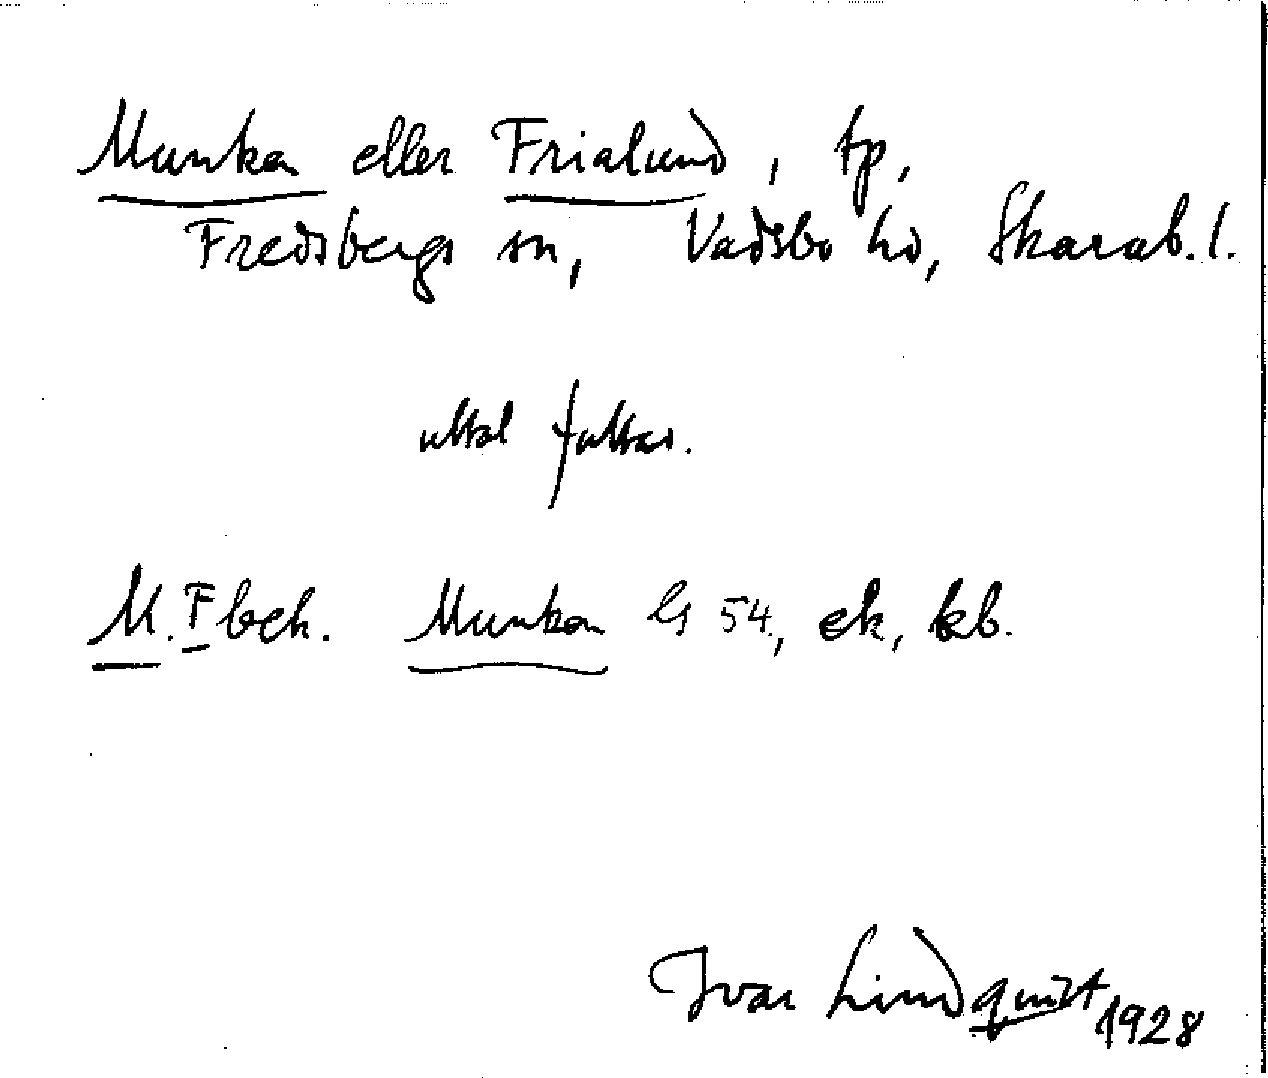 Munka eller Frialund, tp,
Fredsbergs sn, Vadsbo hd, Skarab. l.
uttal fattas.
M. F bek. Munkan GS 54, ek, kb.
Ivar Lindquist 1928